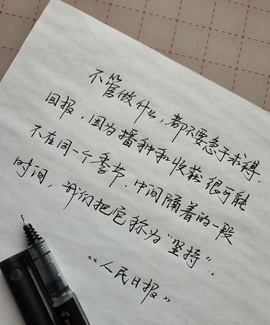 不管做什么，都不要急于求得
回报，因为播种和收获很可能
不在同一个季节，中间隔着的一段
时间，我们把它称为“坚持”.
“人民日报”